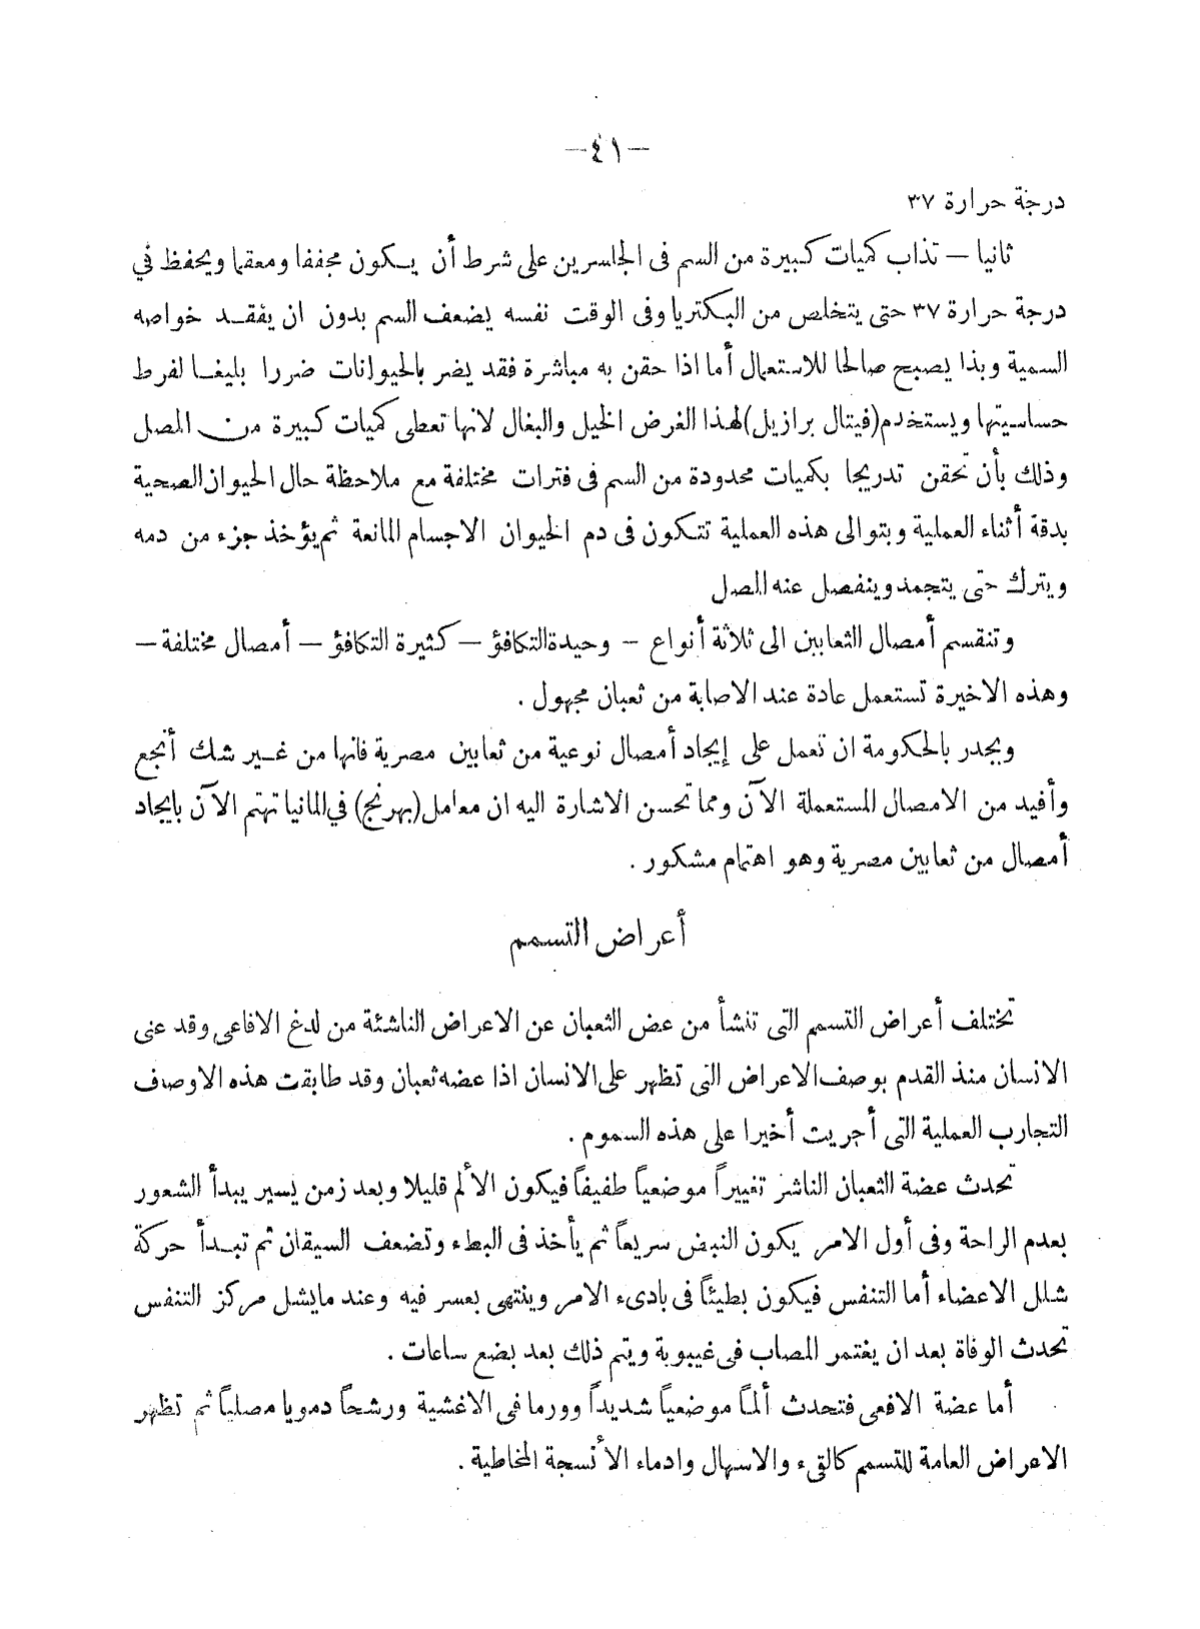 —٤١—
درجة حرارة ٣٧
ثانيا — تذاب كميات كبيرة من السم فى الجلسرين على شرط أن يكون مجففا ومعقما ويحفظ في
درجة حرارة ٣٧ حتى يتخلص من البكتريا وفى الوقت نفسه يضعف السم بدون ان يفقد خواصه
السمية وبذا يصبح صالحا للاستعمال أما اذا حقن به مباشرة فقد يضر بالحيوانات ضررا بليغا لفرط
حساسيتها ويستخدم (فيتال برازيل) لهذا الغرض الخيل والبغال لانها تعطى كميات كبيرة من المصل
وذلك بأن تحقن تدريجا بكميات محدودة من السم فى فترات مختلفة مع ملاحظة حال الحيوان الصحية
بدقة أثناء العملية وبتوالى هذه العملية تتكون فى دم الحيوان الاجسام المانعة ثم يؤخذ جزء من دمه
ويترك حتى يتجمد وينفصل عنه المصل
وتنقسم أمصال الثعابين الى ثلاثة أنواع – وحيدة التكافؤ – كثيرة التكافؤ – أمصال مختلفة –
وهذه الاخيرة تستعمل عادة عند الاصابة من ثعبان مجهول .
ويجدر بالحكومة ان تعمل على إيجاد أمصال نوعية من ثعابين مصرية فانها من غير شك أنجع
وأفيد من الامصال المستعملة الآن ومما تحسن الاشارة اليه ان معامل (بهرنج) في المانيا تهتم الآن بايجاد
أمصال من ثعابين مصرية وهو اهتمام مشكور .
أعراض التسمم
تختلف أعراض التسمم التى تنشأ من عض الثعبان عن الاعراض الناشئة من لدغ الافاعى وقد عنى
الانسان منذ القدم بوصف الاعراض التى تظهر على الانسان اذا عضه ثعبان وقد طابقت هذه الاوصاف
التجارب العملية التى أجريت أخيرا على هذه السموم .
تحدث عضة الثعبان الناشر تغييراً موضعياً طفيفاً فيكون الألم قليلا وبعد زمن يسير يبدأ الشعور
بعدم الراحة وفى أول الامر يكون النبض سريعاً ثم يأخذ فى البطء وتضعف السيقان ثم تبدأ حركة
شلل الاعضاء أما التنفس فيكون بطيئاً فى بادىء الامر وينتهى بعسر فيه وعند مايشل مركز التنفس
تحدث الوفاة بعد ان يغتمر المصاب فى غيبوبة ويتم ذلك بعد بضع ساعات .
أما عضة الافعى فتحدث ألماً موضعياً شديداً وورما فى الاغشية ورشحاً دمويا مصلياً ثم تظهر
الاعراض العامة للتسمم كالقىء والاسهال وادماء الأنسجة المخاطية .